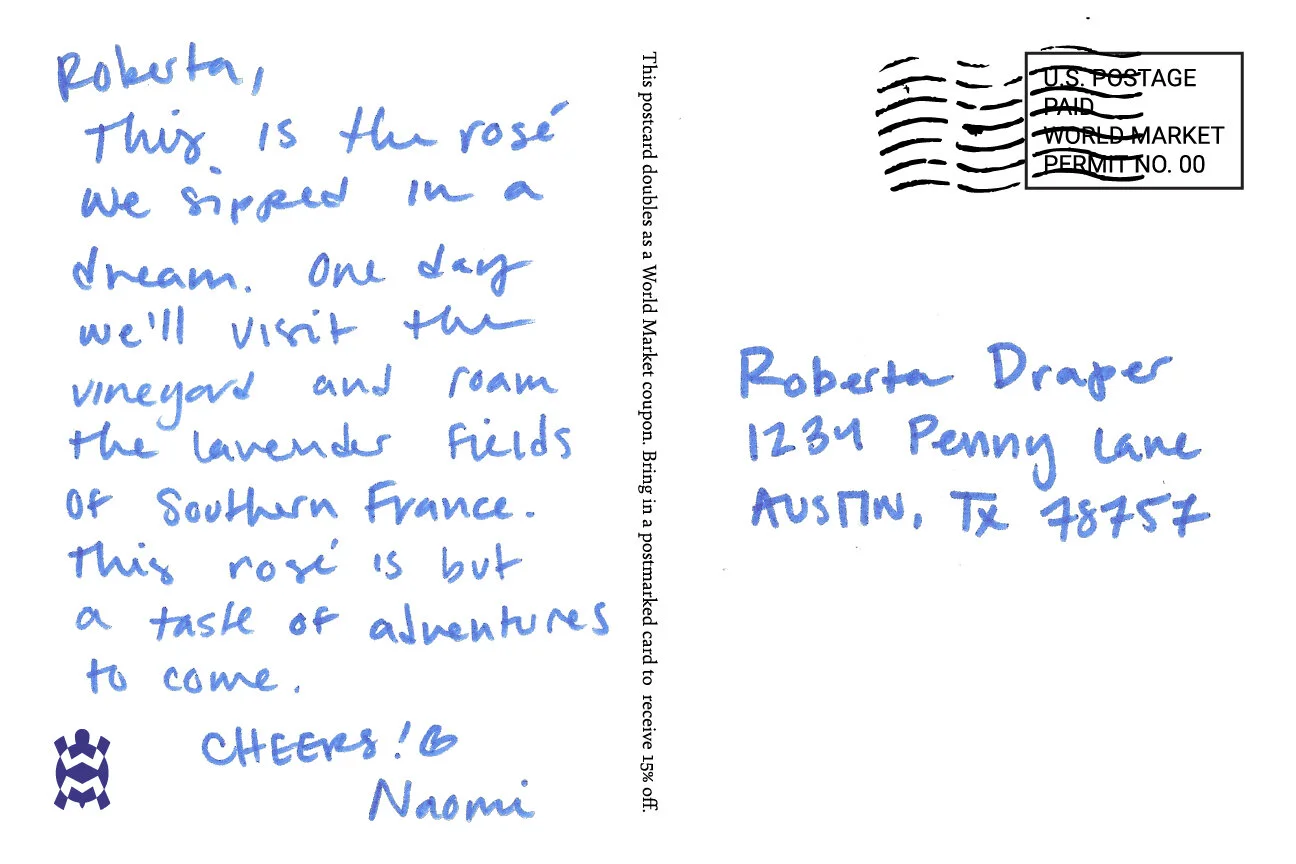 Roberta,
This is the rosé
we sipped in a
dream. One day
we'll visit the
vineyard and roam
the lavender fields
of Southern France.
This rosé is but
a taste of adventures
to come.
CHEERS!
Naomi
This postcard doubles as a World Market coupon. Bring in a postmarked card to receive 15% off.
U.S. POSTAGE
PAID
WORLD MARKET
PERMIT NO. 00
Roberta Draper
1234 Penny Lane
AUSTIN, TX 78757